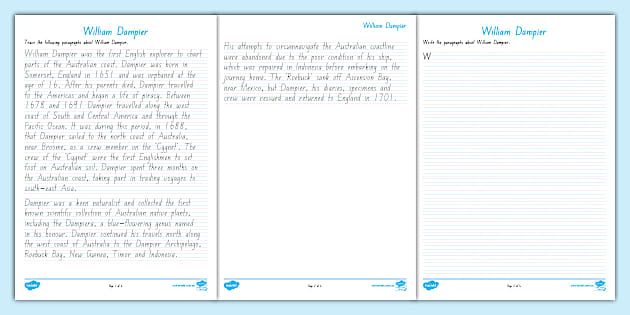 William Dampier
Trace the following paragraphs about William Dampier.
William Dampier was the first English explorer to chart
parts of the Australian coast. Dampier was born in
Somerset, England in 1651 and was orphaned at the
age of 16. After his parents died, Dampier travelled
to the Americas and began a life of piracy. Between
1678 and 1691 Dampier travelled along the west
coast of South and Central America and through the
Pacific Ocean. It was during this period, in 1688,
that Dampier sailed to the north coast of Australia,
near Broome, as a crew member on the 'Cygnet'. The
crew of the 'Cygnet' were the first Englishmen to set
foot on Australian soil. Dampier spent three months on
the Australian coast, taking part in trading voyages to
south-east Asia.
Dampier was a keen naturalist and collected the first
known scientific collection of Australian native plants,
including the Dampiera, a blue-flowering genus named
in his honour. Dampier continued his travels north along
the west coast of Australia to the Dampier Archipelago,
Roebuck Bay, New Guinea, Timor and Indonesia.
twinkl
William Dampier
His attempts to circumnavigate the Australian coastline
were abandoned due to the poor condition of his ship,
which was repaired in Indonesia before embarking on the
journey home. The 'Roebuck' sank off Ascension Bay,
near Mexico, but Dampier, his diaries, specimens and
crew were rescued and returned to England in 1701.
twinkl
William Dampier
Write the paragraphs about William Dampier.
W
twinkl